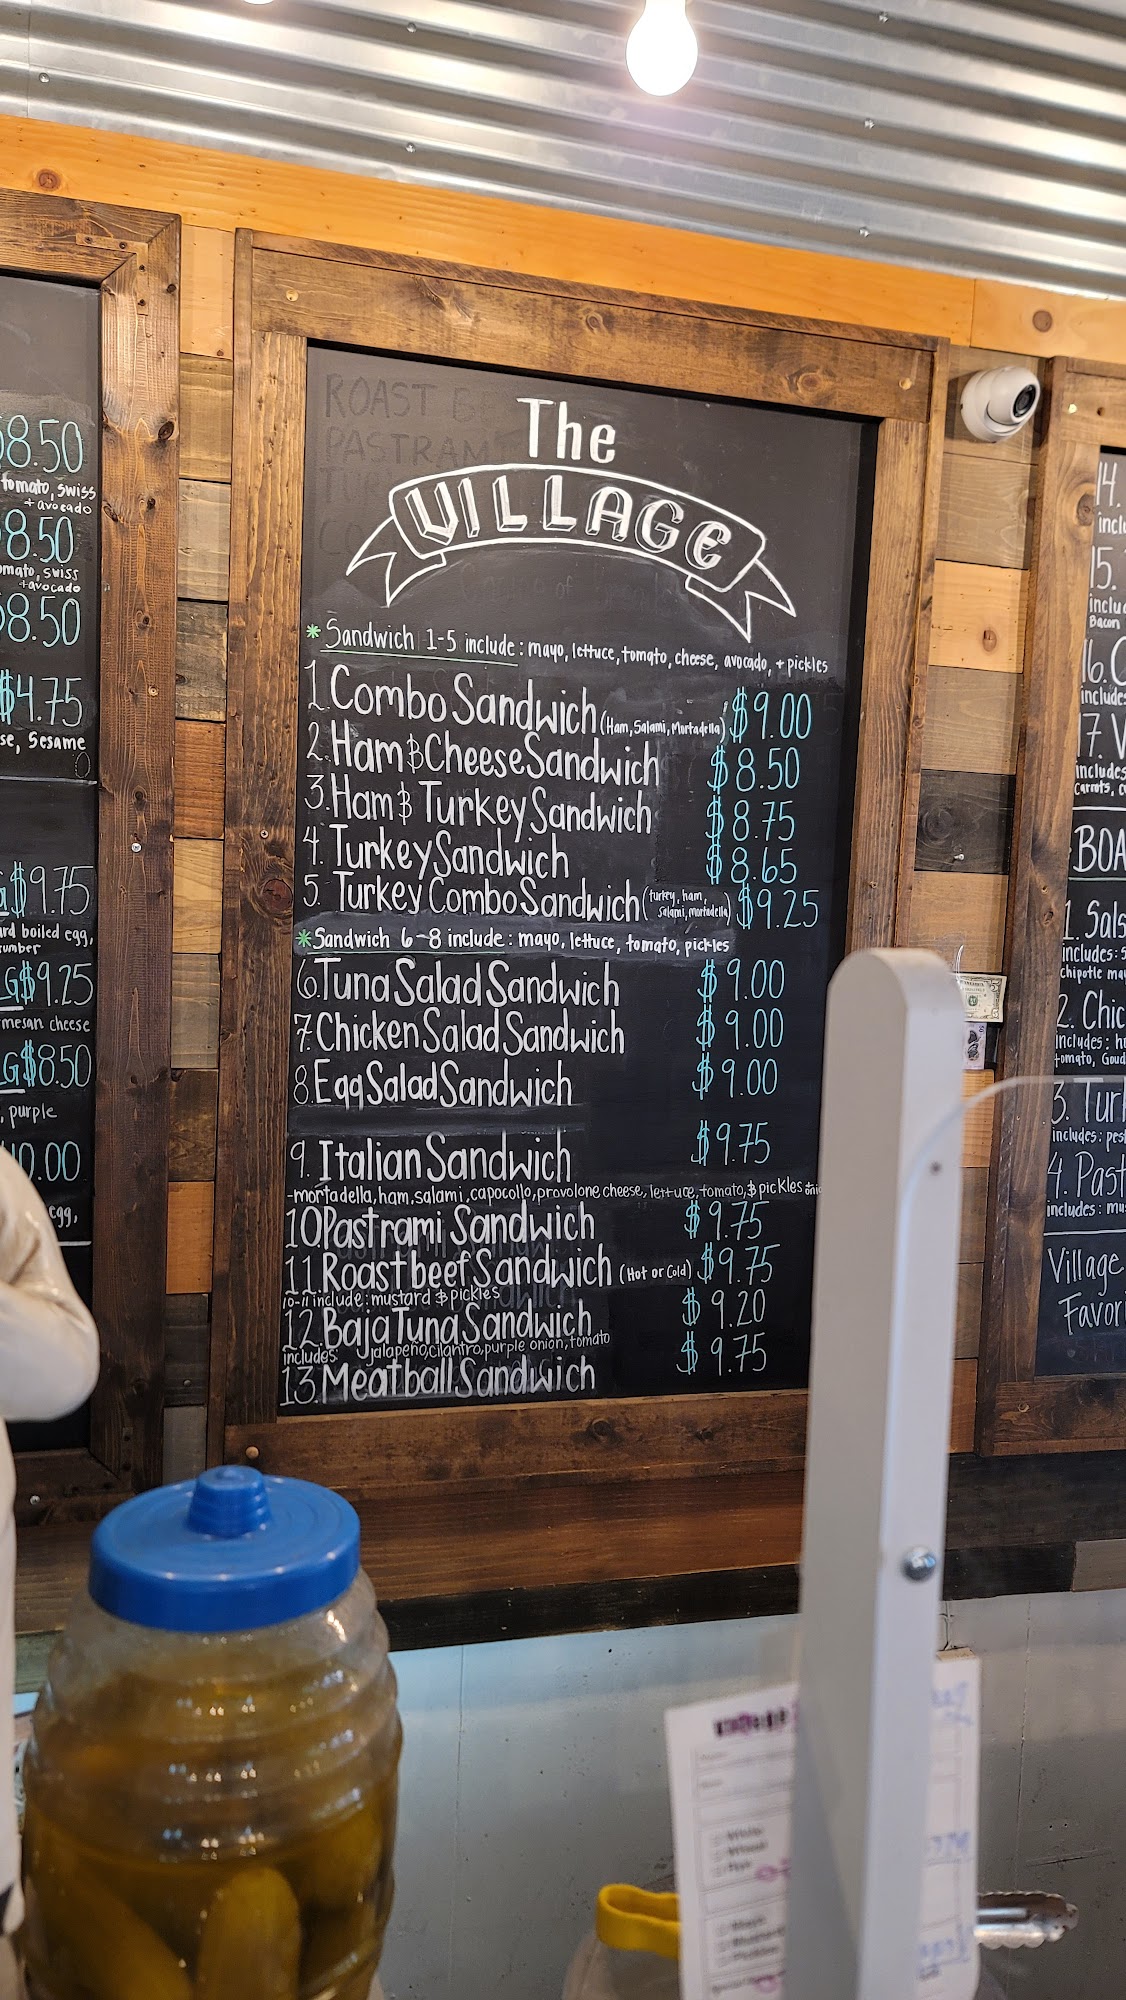 The
VILLAGE
* Sandwich 1-5 include: mayo, lettuce, tomato, cheese, avocado, + pickles
1. Combo Sandwich (Ham, Salami, Mortadella) $9.00
2. Ham & Cheese Sandwich $8.50
3. Ham & Turkey Sandwich $8.75
4. Turkey Sandwich $8.65
5. Turkey Combo Sandwich (turkey, ham, salami, mortadella) $9.25
* Sandwich 6-8 include: mayo, lettuce, tomato, pickles
6. Tuna Salad Sandwich $9.00
7. Chicken Salad Sandwich $9.00
8. Egg Salad Sandwich $9.00
9. Italian Sandwich $9.75
-mortadella, ham, salami, capocollo, provolone cheese, lettuce, tomato, & pickles
10 Pastrami Sandwich $9.75
11. Roast beef Sandwich (Hot or Cold) $9.75
10-11 include: mustard & pickles
12. Baja Tuna Sandwich $9.20
includes jalapeño, cilantro, purple onion, tomato
13. Meatball Sandwich $9.75
ROAST
PASTRAM
$8.50
tomato, swiss
+ avocado
8.50
mato, swiss
+avocado
$8.50
$4.75
se, Sesame
G $9.75
rd boiled egg,
cumber
G $9.25
mesan cheese
G $8.50
, purple
10.00
egg,
14.
incl
15.
inclu
Bacon
16. C
includes
17. V
includes
carrots, c
BOA
1. Sals
includes: s
chipotle ma
2. Chic
includes: h
tomato, Goud
3. Turk
includes: pes
4. Past
includes: mu
Village
Favori